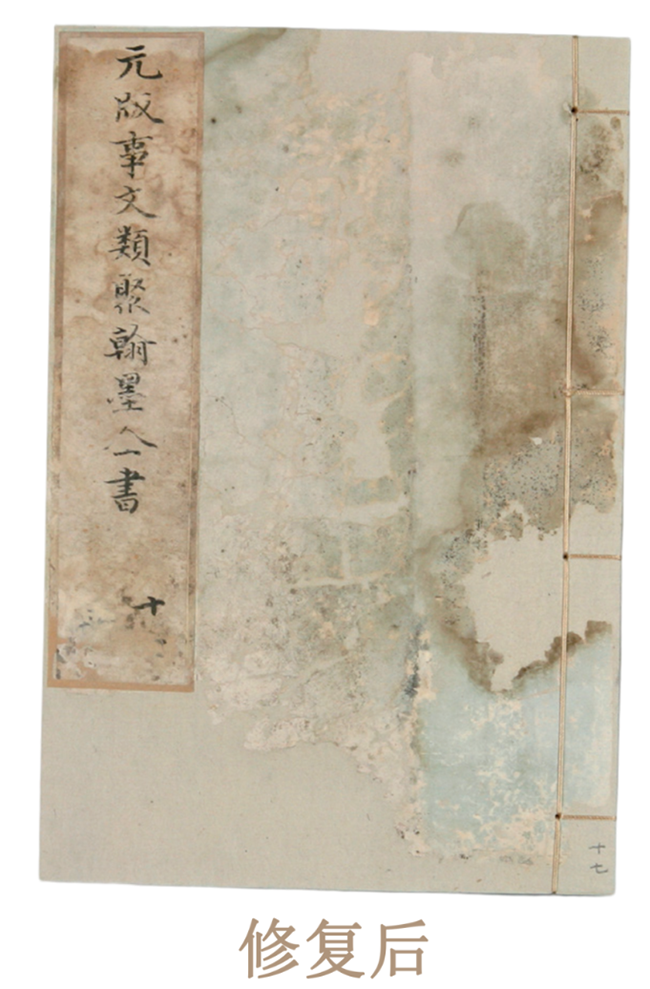 元版事文類聚翰墨全書
十
十七
修复后